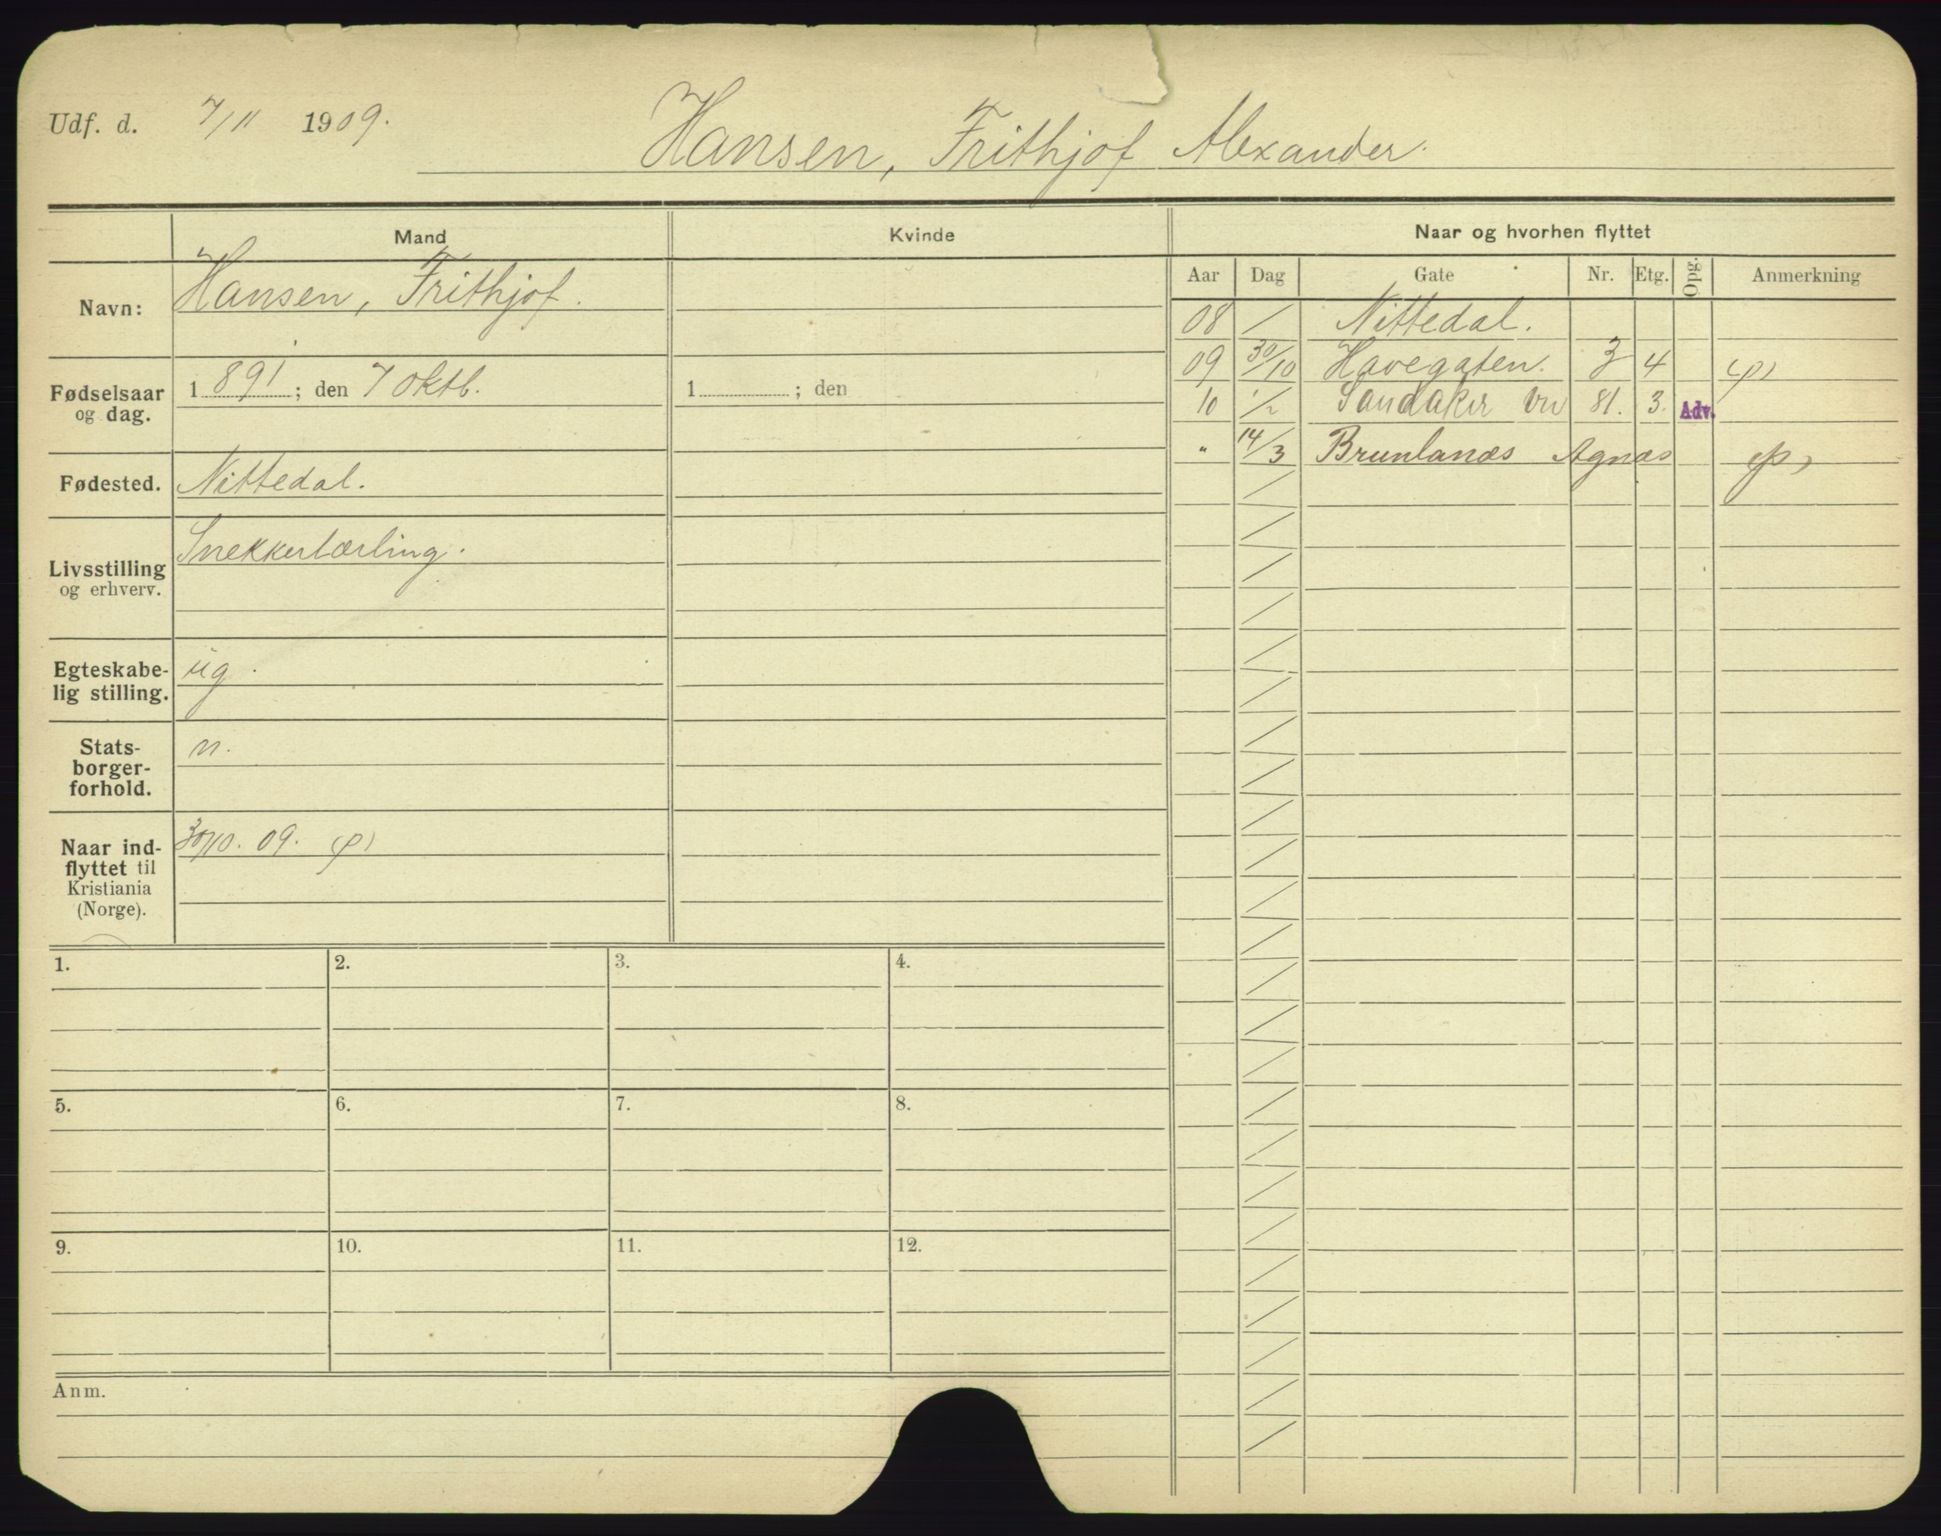 Udf. d. 7/11 1909. Hansen, Frithjof Alexander.
Mand Kvinde Naar og hvorhen flyttet
Aar Dag Gate Nr. Etg. Opg. Anmerkning
Navn: Hansen, Frithjof.
08 / Nittedal.
09 30/10 Havegaten. 3 4 (p)
Fødselsaar og dag. 1891; den 7 oktb. 1 ; den
10 1/2 Sandaker vn 81. 3. Adv.
" 14/3 Brunlanæs Agnæs (p)
Fødested. Nittedal.
Livsstilling og erhverv. Snekkerlærling.
Egteskabe-
lig stilling. ug.
Stats-
borger-
forhold. n.
Naar ind-
flyttet til
Kristiania
(Norge). 30/10. 09. (p)
1. 2. 3. 4.
5. 6. 7. 8.
9. 10. 11. 12.
Anm.